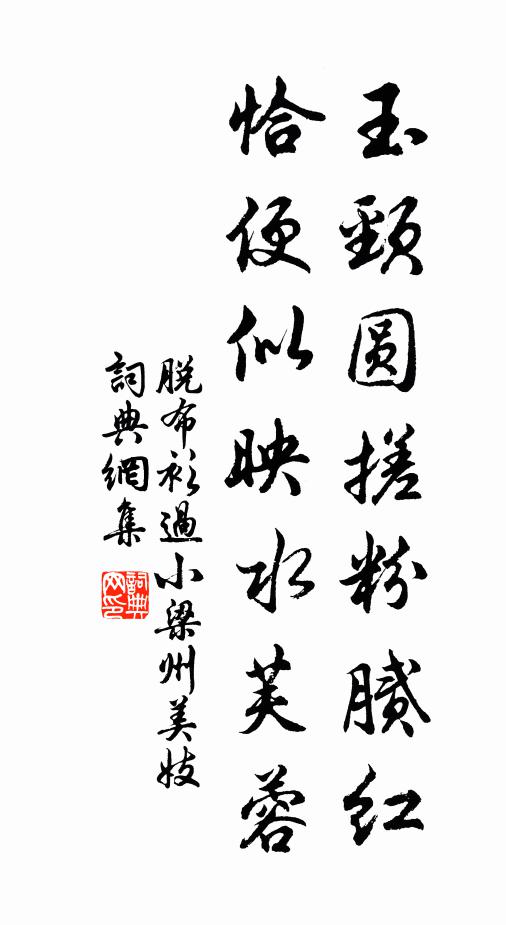 玉頸圓搓粉膩紅
恰便似映水芙蓉
脫布衫過小梁州美妓
詞典網集
詞典网印